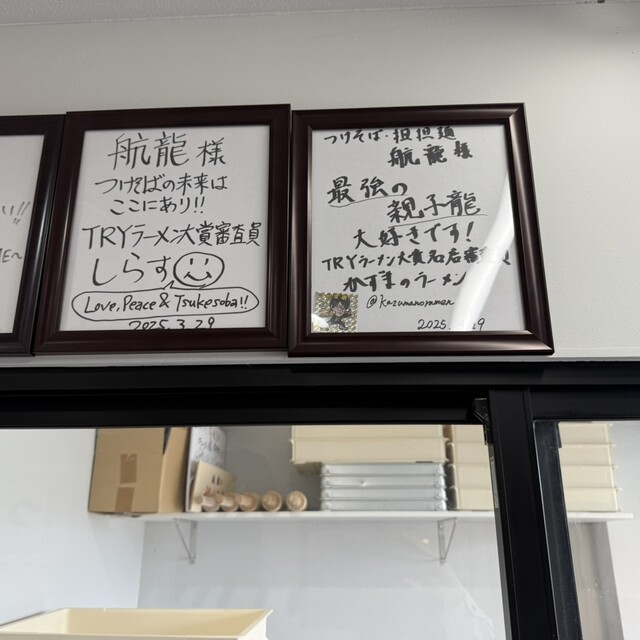 航龍様
つけそばの未来は
ここにあり!!
TRYラーメン大賞審査員
しらす
Love, Peace & Tsukesoba!!
2025.3.29
つけそば・担担麺
航龍様
最強の
親子龍
大好きです!
TRYラーメン大賞名店審査員
かずまのラーメン
@kazumanoramen